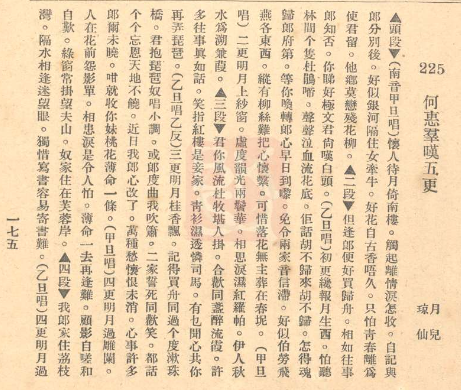 225
何惠羣嘆五更
月兒
瓊仙
▲頭段▼(南音甲旦唱)懷人待月倚南樓。觸起離情淚怎收。自記與
郎分別後。好似銀河隔住女牽牛。好花自古香唔久。只怕青春難爲
使君留。他鄉莫戀殘花柳。▲二段▼但逢郎便好買歸舟。相如往事
郎知否。你睇好極文君尚嘆白頭。(乙旦唱)初更纔報月生西。怕聽
林間个隻杜鵑啼。聲聲泣血流花底。佢話胡不歸來胡不歸。怎得魂
歸郎府第。等你喚轉郎心早日到嚟。免令兩家音信滯。好似伯勞飛
燕各東西。縱有柳絲難把心懷繫。可惜落花無主葬在春坭。(甲旦
唱)二更明月上紗窗。虛度韶光兩鬢華。相思淚濕紅羅帕。伊人秋
水爲溯蒹葭。▲三段▼君你風流杜牧堪人掛。合歡同盞醉流霞。許
多往事眞如話。笑指紅樓是妾家。青衫濕透憐司馬。有乜閒心共你
再弄琵琶。(乙旦唱乙反)三更明月桂香飄。記得買舟同過个度漱珠
橋。君抱琵琶奴唱小調。或郎度曲我吹簫。二家誓死同歡笑。都話
个个忘恩天地不饒。近日我郎心改了。萬種愁懷恨未消。心事許多
郎爾未曉。咁就收你妹桃花薄命一條。(甲旦唱)四更明月過雕闌。
人在花前怨影單。相思淚是令人怕。薄命一去再逢難。顧影自嗟和
自歎。綠窗常掛望夫山。奴家住在芙蓉岸。▲四段▼我郎家住荔枝
灣。隔水相逢迷望眼。獨惜寫書容易寄書難。(乙旦唱)四更明月過
一七五